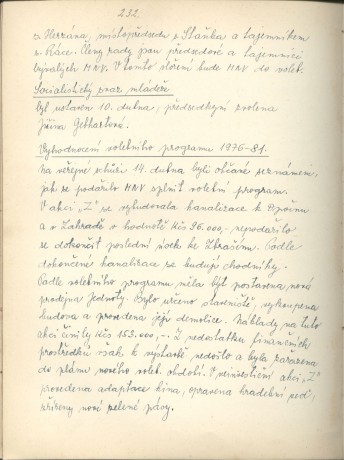 232.
z Herzána, místopředsedu s. Staňka a tajemníkem
s. Ráce. Členy rady jsou předsedové a tajemníci
bývalých MNV. V tomto složení bude MNV do voleb.
Socialistický svaz mládeže
byl ustaven 10. dubna, předsedkyní zvolena
Jiřina Gebhartová.
Vyhodnocení volebního programu 1976-81.
Na veřejné schůzi 14. dubna byli občané seznámeni,
jak se podařilo MNV splnit volební program.
V akci „Z" se vybudovala kanalizace k
a v Zahradě v hodnotě Kčs 96.000,- nepodařilo
se dokončit poslední úsek ke Zbraslavi. Podle
dokončené kanalizace se budují chodníky.
Podle volebního programu měla být postavena nová
prodejna Jednoty. Bylo určeno staveniště, vykoupena
budova a provedena její demolice. Náklady na tuto
akci činily Kčs 153.000,-. Z nedostatku finančních
prostředků však k výstavbě nedošlo a byla zařazena
do plánu nového voleb. období. V neinvestiční akci „Z"
provedena adaptace kina, opravena hradební zeď,
zřízeny nové zelené pásy.